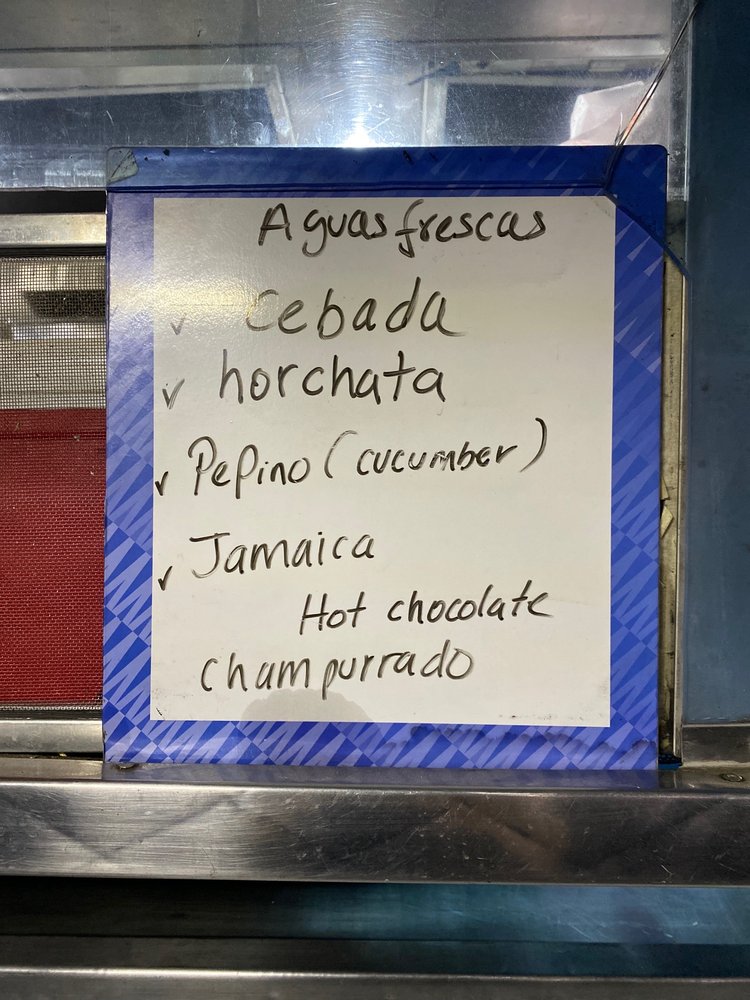 Aguas frescas
✓ cebada
✓ horchata
✓ Pepino (cucumber)
✓ Jamaica
Hot chocolate
champurrado